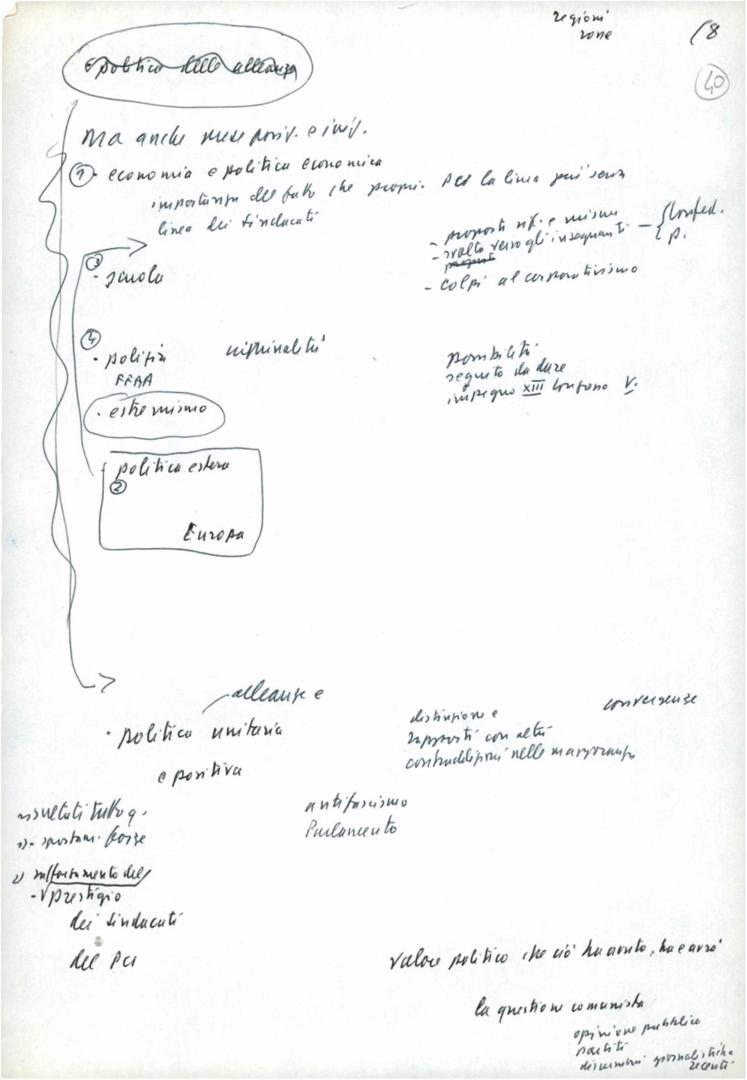 regioni
zone
18
40
politica delle alleanze
Ma anche mese posiv. e iniz.
1 · economia e politica economica
importanza del fatto che propr. PCI la linea più senza
linea dei sindacati
- proposte rif. e misure
- svolta verso gli insegnanti - Confed.
P.
- colpi al corporativismo
3
- scuola
4
· polizia criminalità
FFAA
possibilità
seguito da dare
impegno XIII Congresso V.
· estremismo
politica estera
2
Europa
alleanze e
· politica unitaria
e positiva
distinzione e
rapporti con altri
contraddizioni nelle maggioranze
convergenze
risultati tutto q.
1) - spostam. forze
2) rafforzamento del
- prestigio
dei sindacati
del PCI
antifascismo
Parlamento
valore politico che ciò ha avuto, ha e avrà
la questione comunista
opinione pubblica
partiti
discussioni giornalistiche
recenti